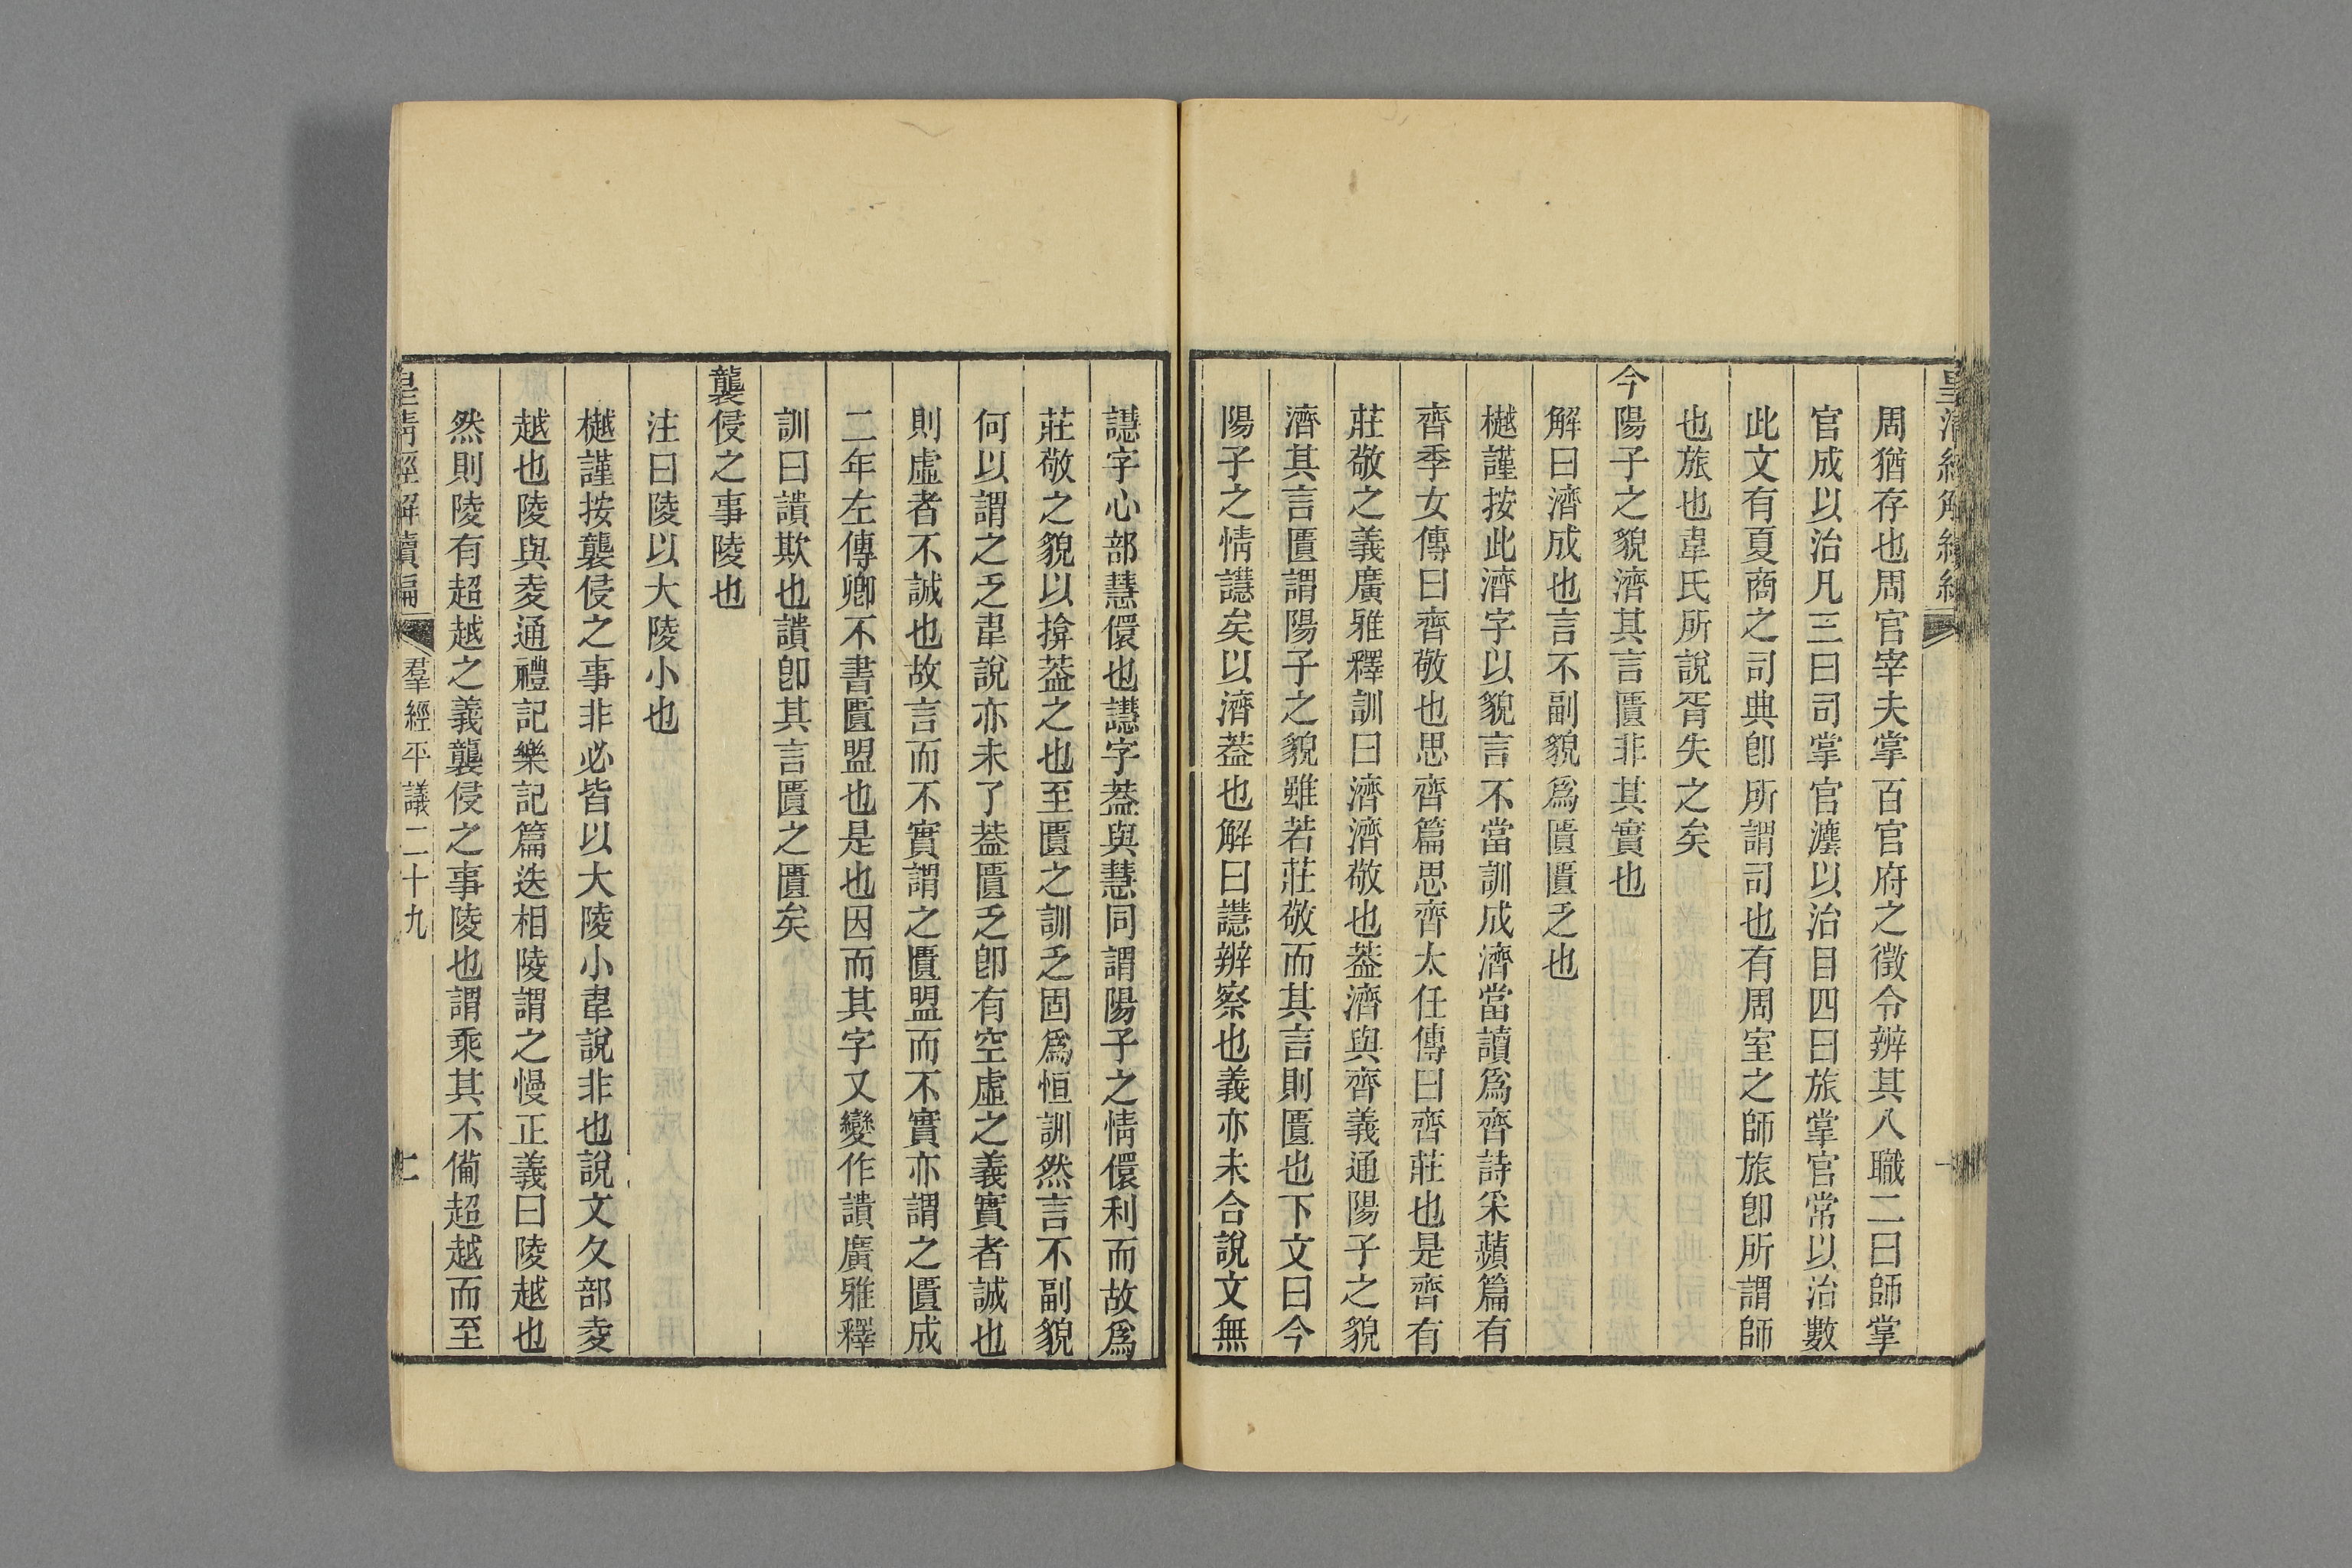 周猶存也周官宰夫掌百官府之徵令辨其八職二曰師掌
官成以治凡三曰司掌官灋以治目四曰旅掌官常以治數
此文有夏商之司典卽所謂司也有周室之師旅卽所謂師
也旅也韋氏所說胥失之矣
今陽子之貌濟其言匱非其實也
解曰濟成也言不副貌爲匱匱乏也
樾謹按此濟字以貌言不當訓成濟當讀爲齊詩采蘋篇有
齊季女傳曰齊敬也思齊篇思齊太任傳曰齊莊也是齊有
莊敬之義廣雅釋訓曰濟濟敬也葢濟與齊義通陽子之貌
濟其言匱謂陽子之貌雖若莊敬而其言則匱也下文曰今
陽子之情譓矣以濟葢也解曰譓辨察也義亦未合說文無
譓字心部慧儇也譓字葢與慧同謂陽子之情儇利而故爲
莊敬之貌以揜葢之也至匱之訓乏固爲恒訓然言不副貌
何以謂之乏韋說亦未了葢匱乏卽有空虛之義實者誠也
則虛者不誠也故言而不實謂之匱盟而不實亦謂之匱成
二年左傳卿不書匱盟也是也因而其字又變作讃廣雅釋
訓曰讃欺也讃卽其言匱之匱矣
襲侵之事陵也
注曰陵以大陵小也
樾謹按襲侵之事非必皆以大陵小韋說非也說文夂部夌
越也陵與夌通禮記樂記篇迭相陵謂之慢正義曰陵越也
然則陵有超越之義襲侵之事陵也謂乘其不備超越而至
皇清經解續編 羣經平議二十九